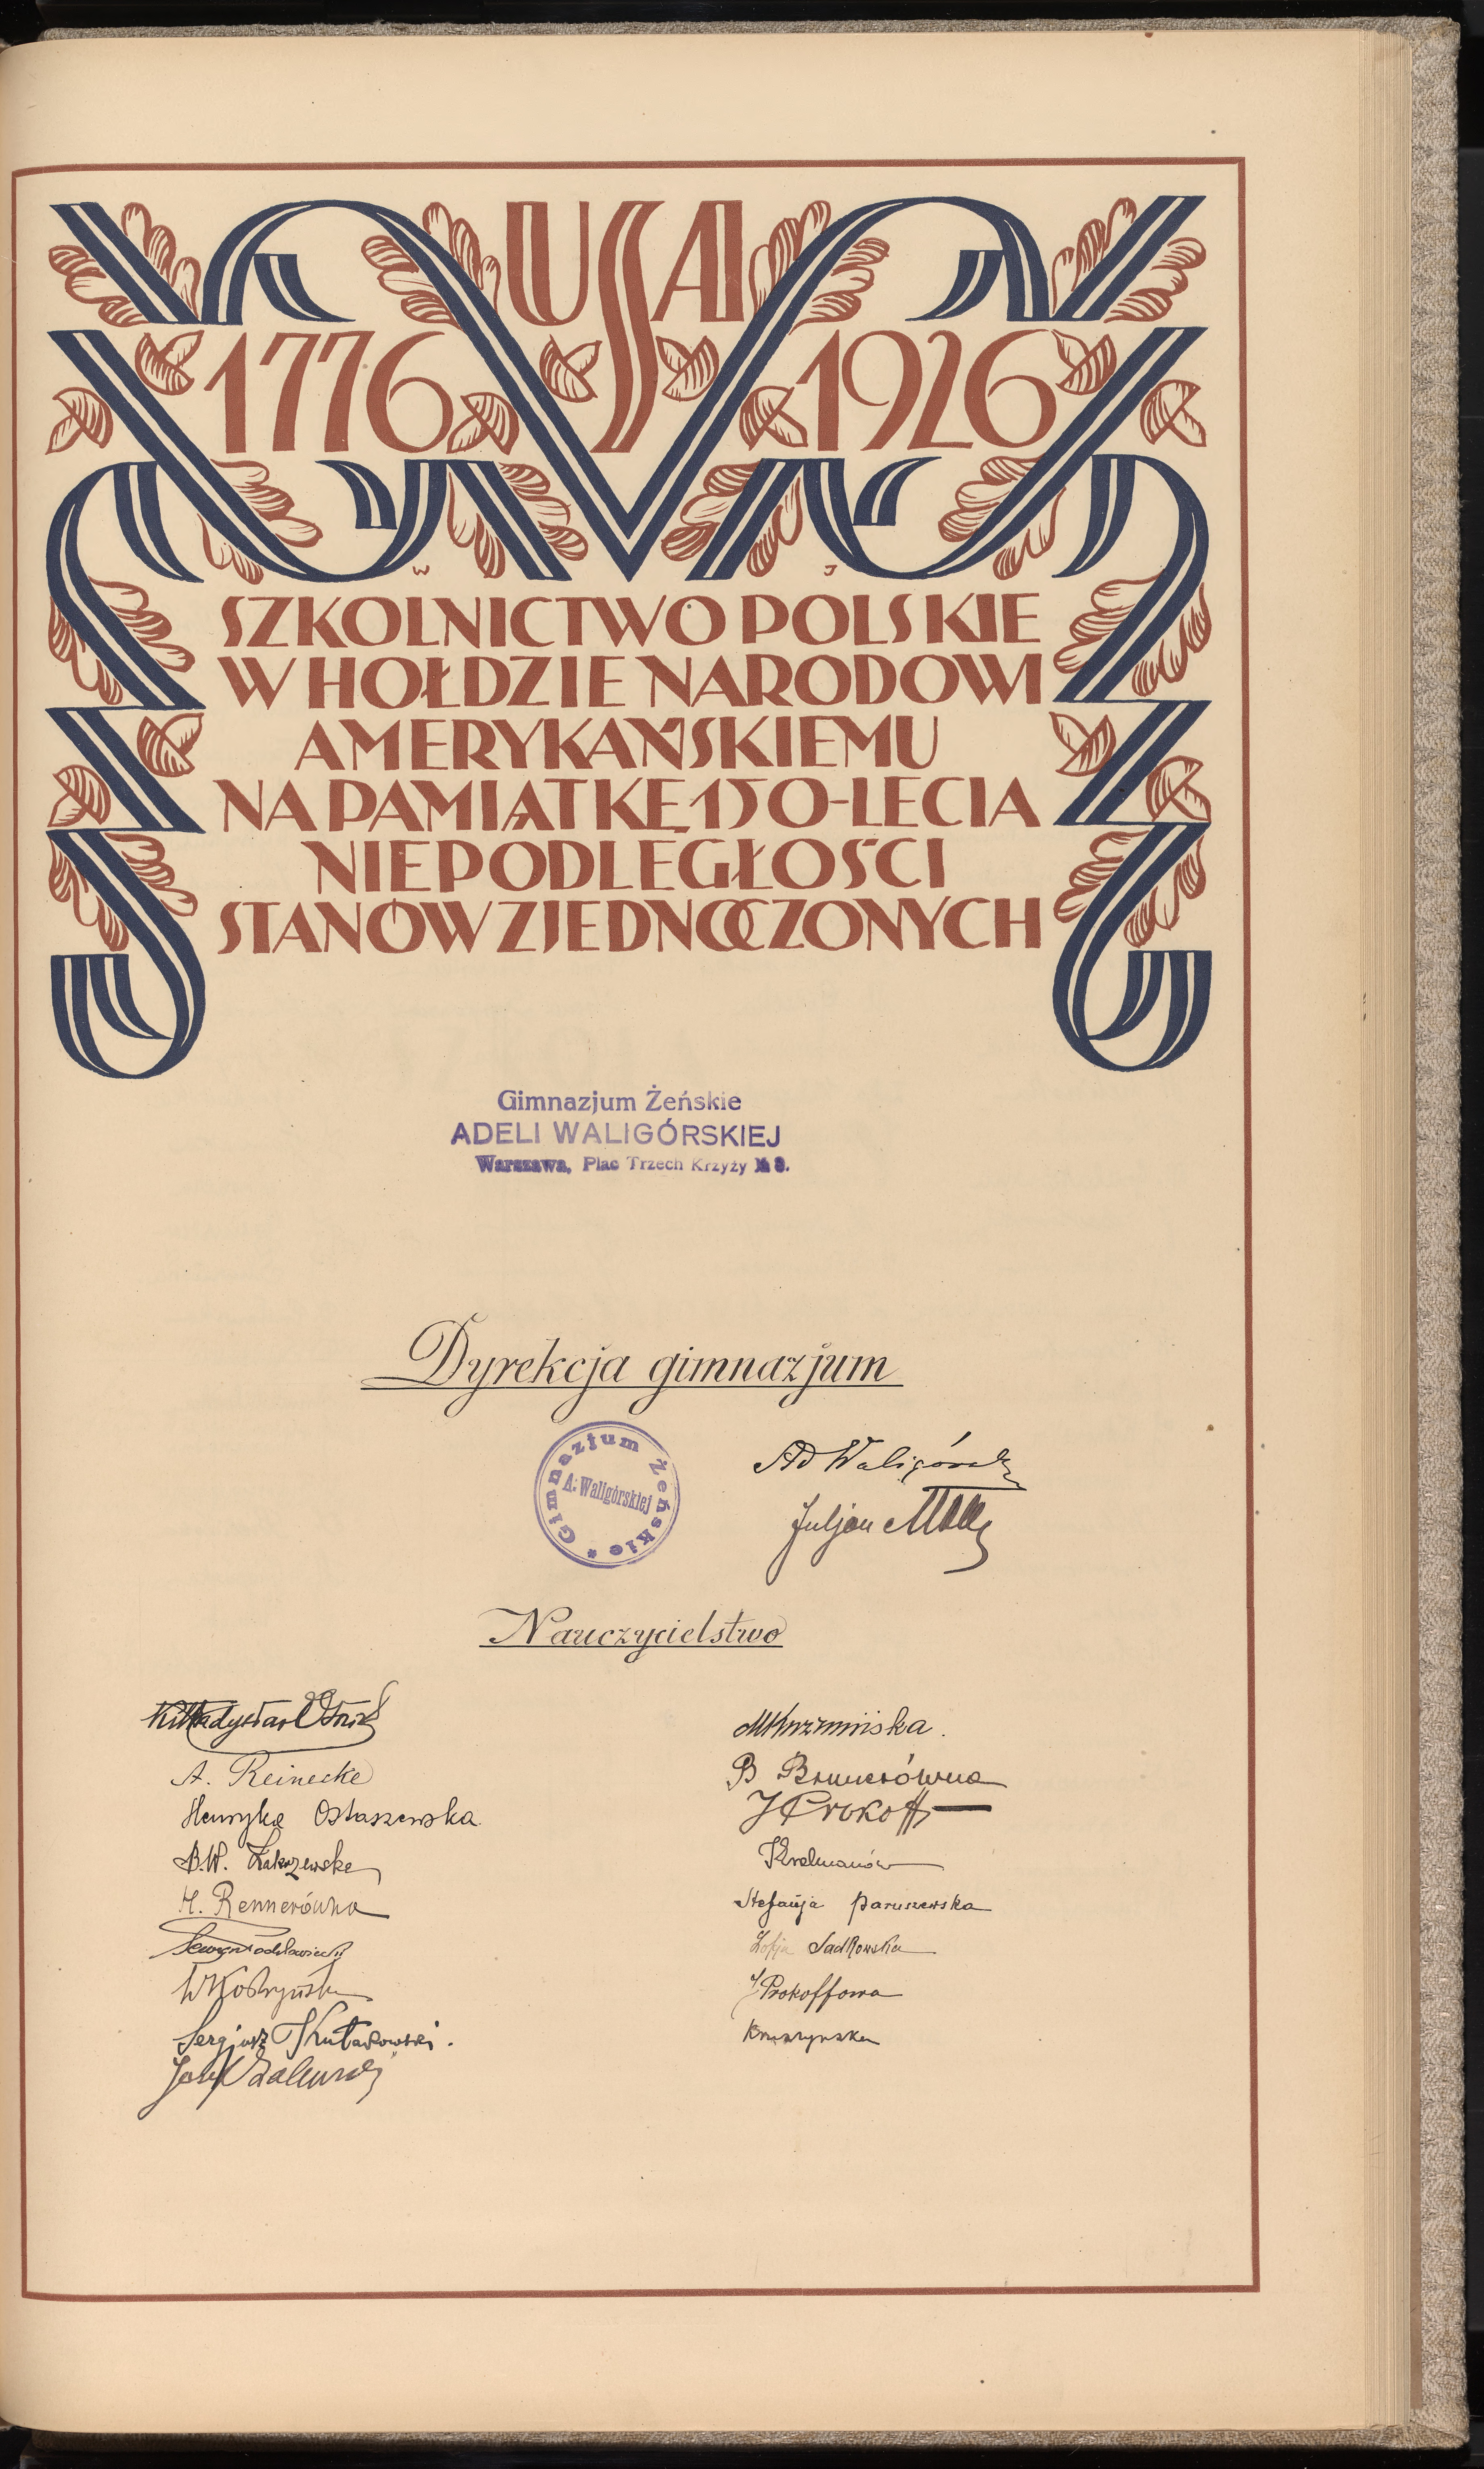 USA
1776 1926
W J
SZKOLNICTWO POLSKIE
W HOŁDZIE NARODOWI
AMERYKAŃSKIEMU
NA PAMIĄTKĘ 150-LECIA
NIEPODLEGŁOŚCI
STANÓW ZJEDNOCZONYCH
Gimnazjum Żeńskie
ADELI WALIGÓRSKIEJ
Warszawa, Plac Trzech Krzyży №
Dyrekcja gimnazjum
Gimnazjum Żeńskie *
A. Waligórskiej
Ad Waligórska
Juljan
Nauczycielstwo
A. Reinecke
Henryka Ostaszewska
B.W. Zakrzewska
H. Rennerówna
Sergjusz Kułakowski.
B
J Prokoff
Stefanja Paruszewska
Zofja Sadkowska
J Prokoffowa